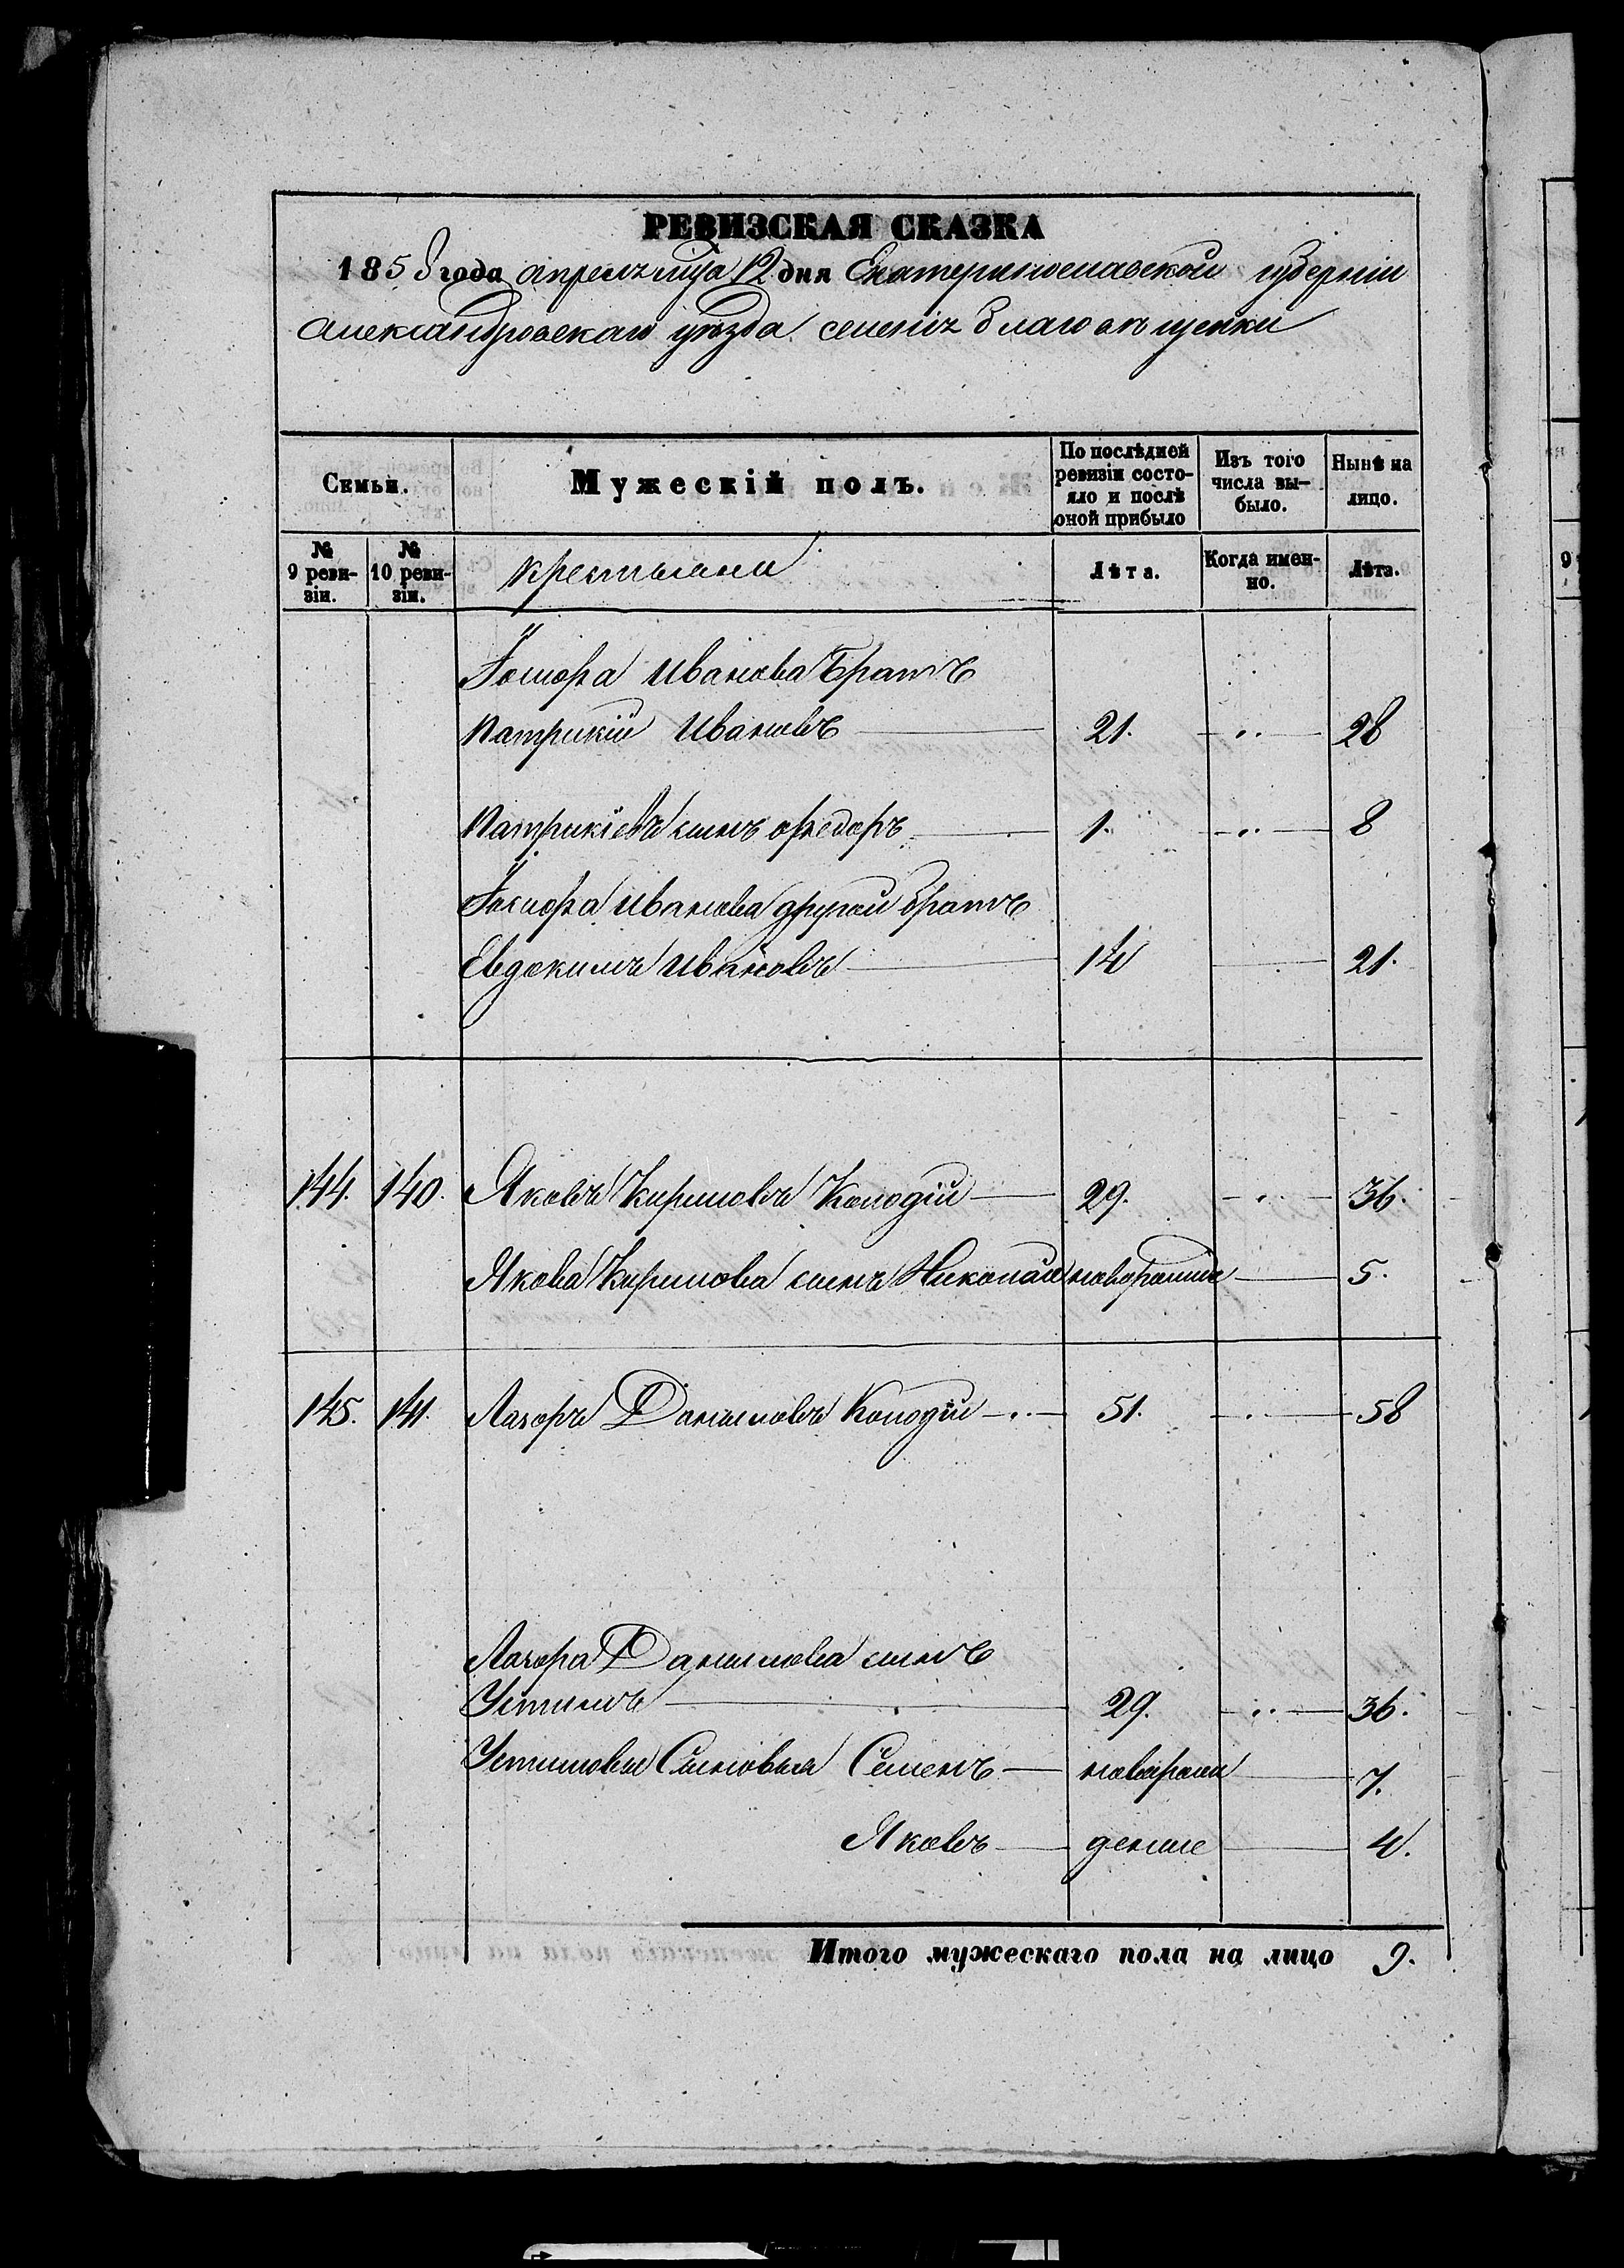 РЕВИЗСКАЯ СКАЗКА
1858 года апреля мца 12 дня Екатеринославской губерніи
Александровскаго уѣзда селенія Благовѣщенки
Семьи.
Мужескій полъ.
По послѣдней ревизіи состо-
яло и послѣ
оной прибыло
Изъ того
числа вы-
было.
Нынѣ на
лицо.
№
9 реви-
зіи.
№
10 реви-
зіи.
крестьяни
Лѣта.
Когда имен-
но.
Лѣта.
Іосифа Иванова Братъ
Патрикій Ивановъ 21. 28
Патрикіевъ сынъ Ѳедоръ 1. 8
Іосифа Иванова другой братъ
Евдокимъ Ивановъ 14 21.
144. 140. Яковъ Кириловъ Колодій 29. 36.
Якова Кирилова сынъ Николай 5.
145. 141. Лазоръ Даниловъ Колодій 51. 58
Лазора Данилова сынъ
Устимъ 29. 36.
Устимовы Сыновья Семенъ новорож 7.
Яковъ денные 4.
Итого мужескаго пола на лицо 9.
9